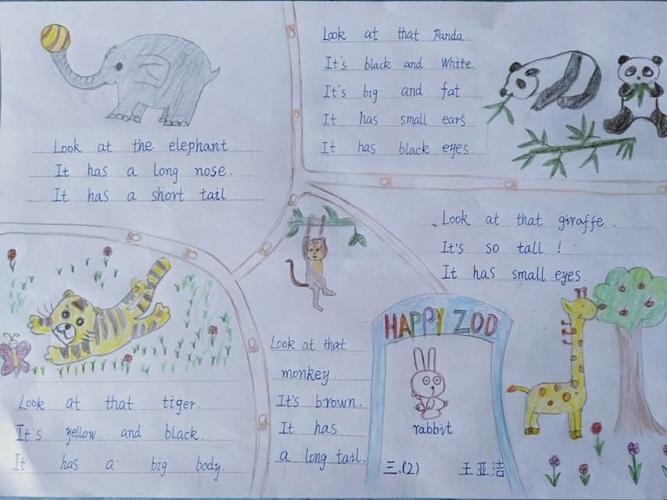 Look at the elephant.
It has a long nose.
It has a short tail
Look at that Panda
It's black and White.
It's big and fat
It has small ears
It has black eyes.
Look at that giraffe.
It's so tall!
It has small eyes.
Look at that tiger.
It's yellow and black.
It has a big body.
Look at that
monkey
It's brown.
It has
a long tail.
HAPPY ZOO
rabbit
三.(2) 王亚洁